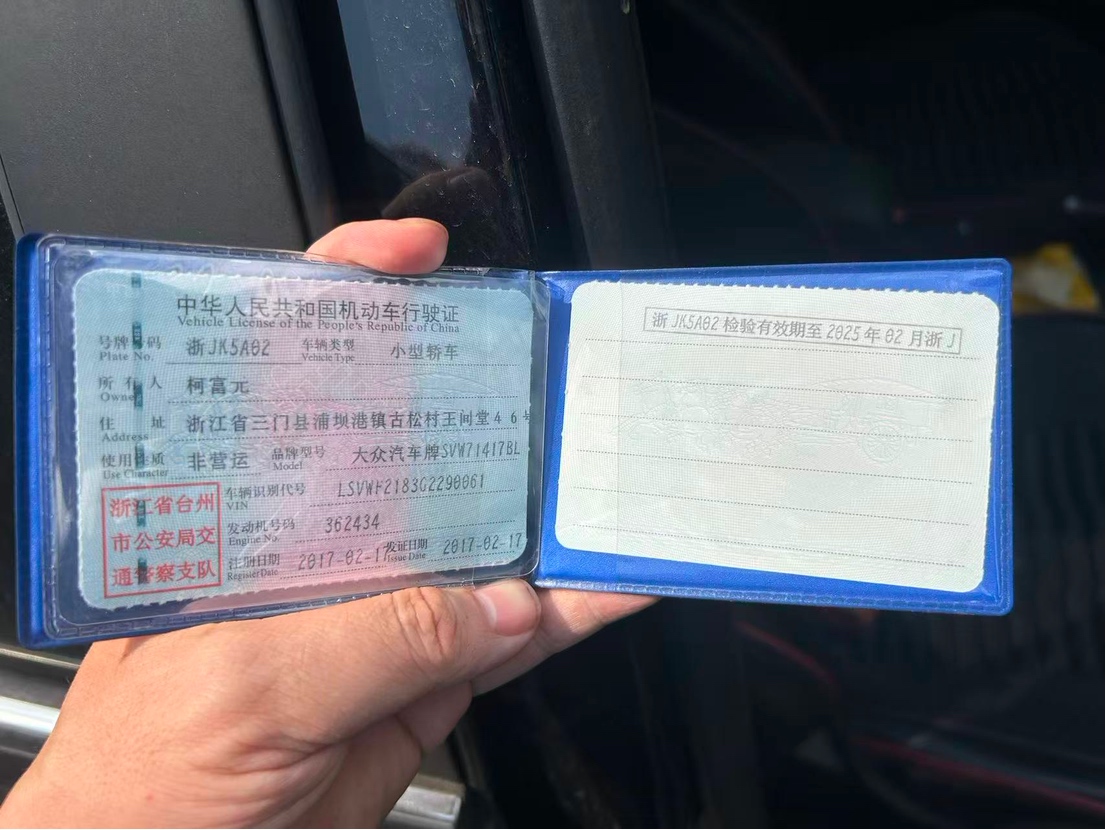 中华人民共和国机动车行驶证
Vehicle License of the People's Republic of China
号牌号码 浙JK5A02 车辆类型 小型轿车
Plate No. Vehicle Type
所有人 柯富元
Owner
住址 浙江省三门县浦坝港镇古松村王间堂46号
Address
使用性质 非营运 品牌型号 大众汽车牌SVW71417BL
Use Character Model
浙江省台州
市公安局交
通警察支队
车辆识别代号 LSVWF2183G2290061
VIN
发动机号码 362434
Engine No.
注册日期 2017-02-17 发证日期 2017-02-17
Register Date Issue Date
浙JK5A02检验有效期至2025年02月浙J